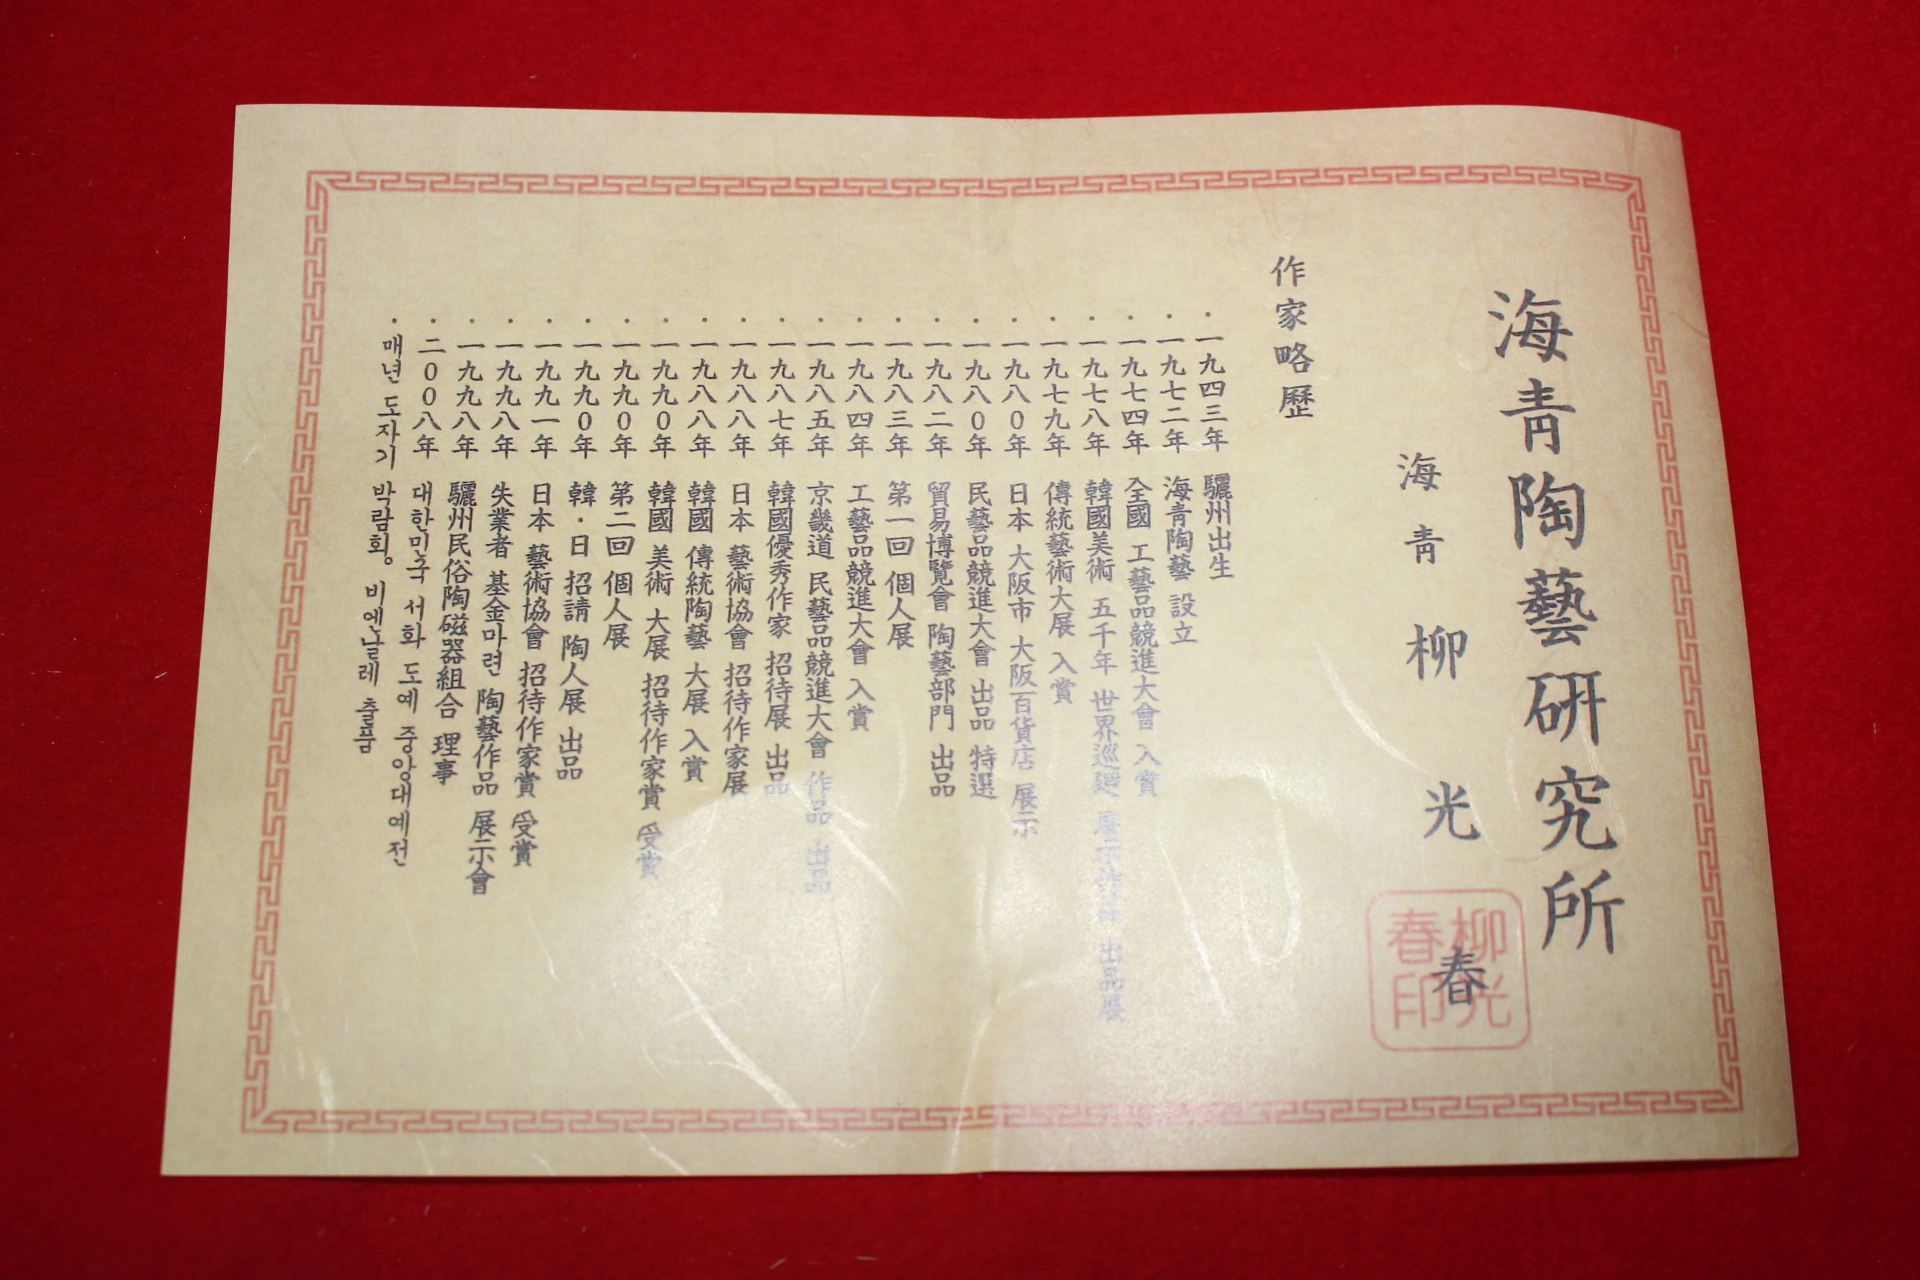 海靑陶藝硏究所
海靑 柳光春
柳光春印
作家略歷
· 一九四三年 驪州出生
· 一九七二年 海靑陶藝 設立
· 一九七四年 全國 工藝品競進大會 入賞
· 一九七八年 韓國美術 五千年 世界巡廻 展示作品 出品展
· 一九七九年 傳統藝術大展 入賞
· 一九八0年 日本 大阪市 大阪百貨店 展示
· 一九八0年 民藝品競進大會 出品 特選
· 一九八二年 貿易博覽會 陶藝部門 出品
· 一九八三年 第一回 個人展
· 一九八四年 工藝品競進大會 入賞
· 一九八五年 京畿道 民藝品競進大會 作品 出品
· 一九八七年 韓國優秀作家 招待展 出品
· 一九八八年 日本 藝術協會 招待作家展
· 一九八八年 韓國 傳統陶藝 大展 入賞
· 一九九0年 韓國 美術 大展 招待作家賞 受賞
· 一九九0年 第二回 個人展
· 一九九0年 韓·日 招請 陶人展 出品
· 一九九一年 日本 藝術協會 招待作家賞 受賞
· 一九九八年 失業者 基金마련 陶藝作品 展示會
· 一九九八年 驪州民俗陶磁器組合 理事
· 二00八年 대한민국 서화 도예 중앙대예전
· 매년 도자기 박람회。 비엔날레 출품